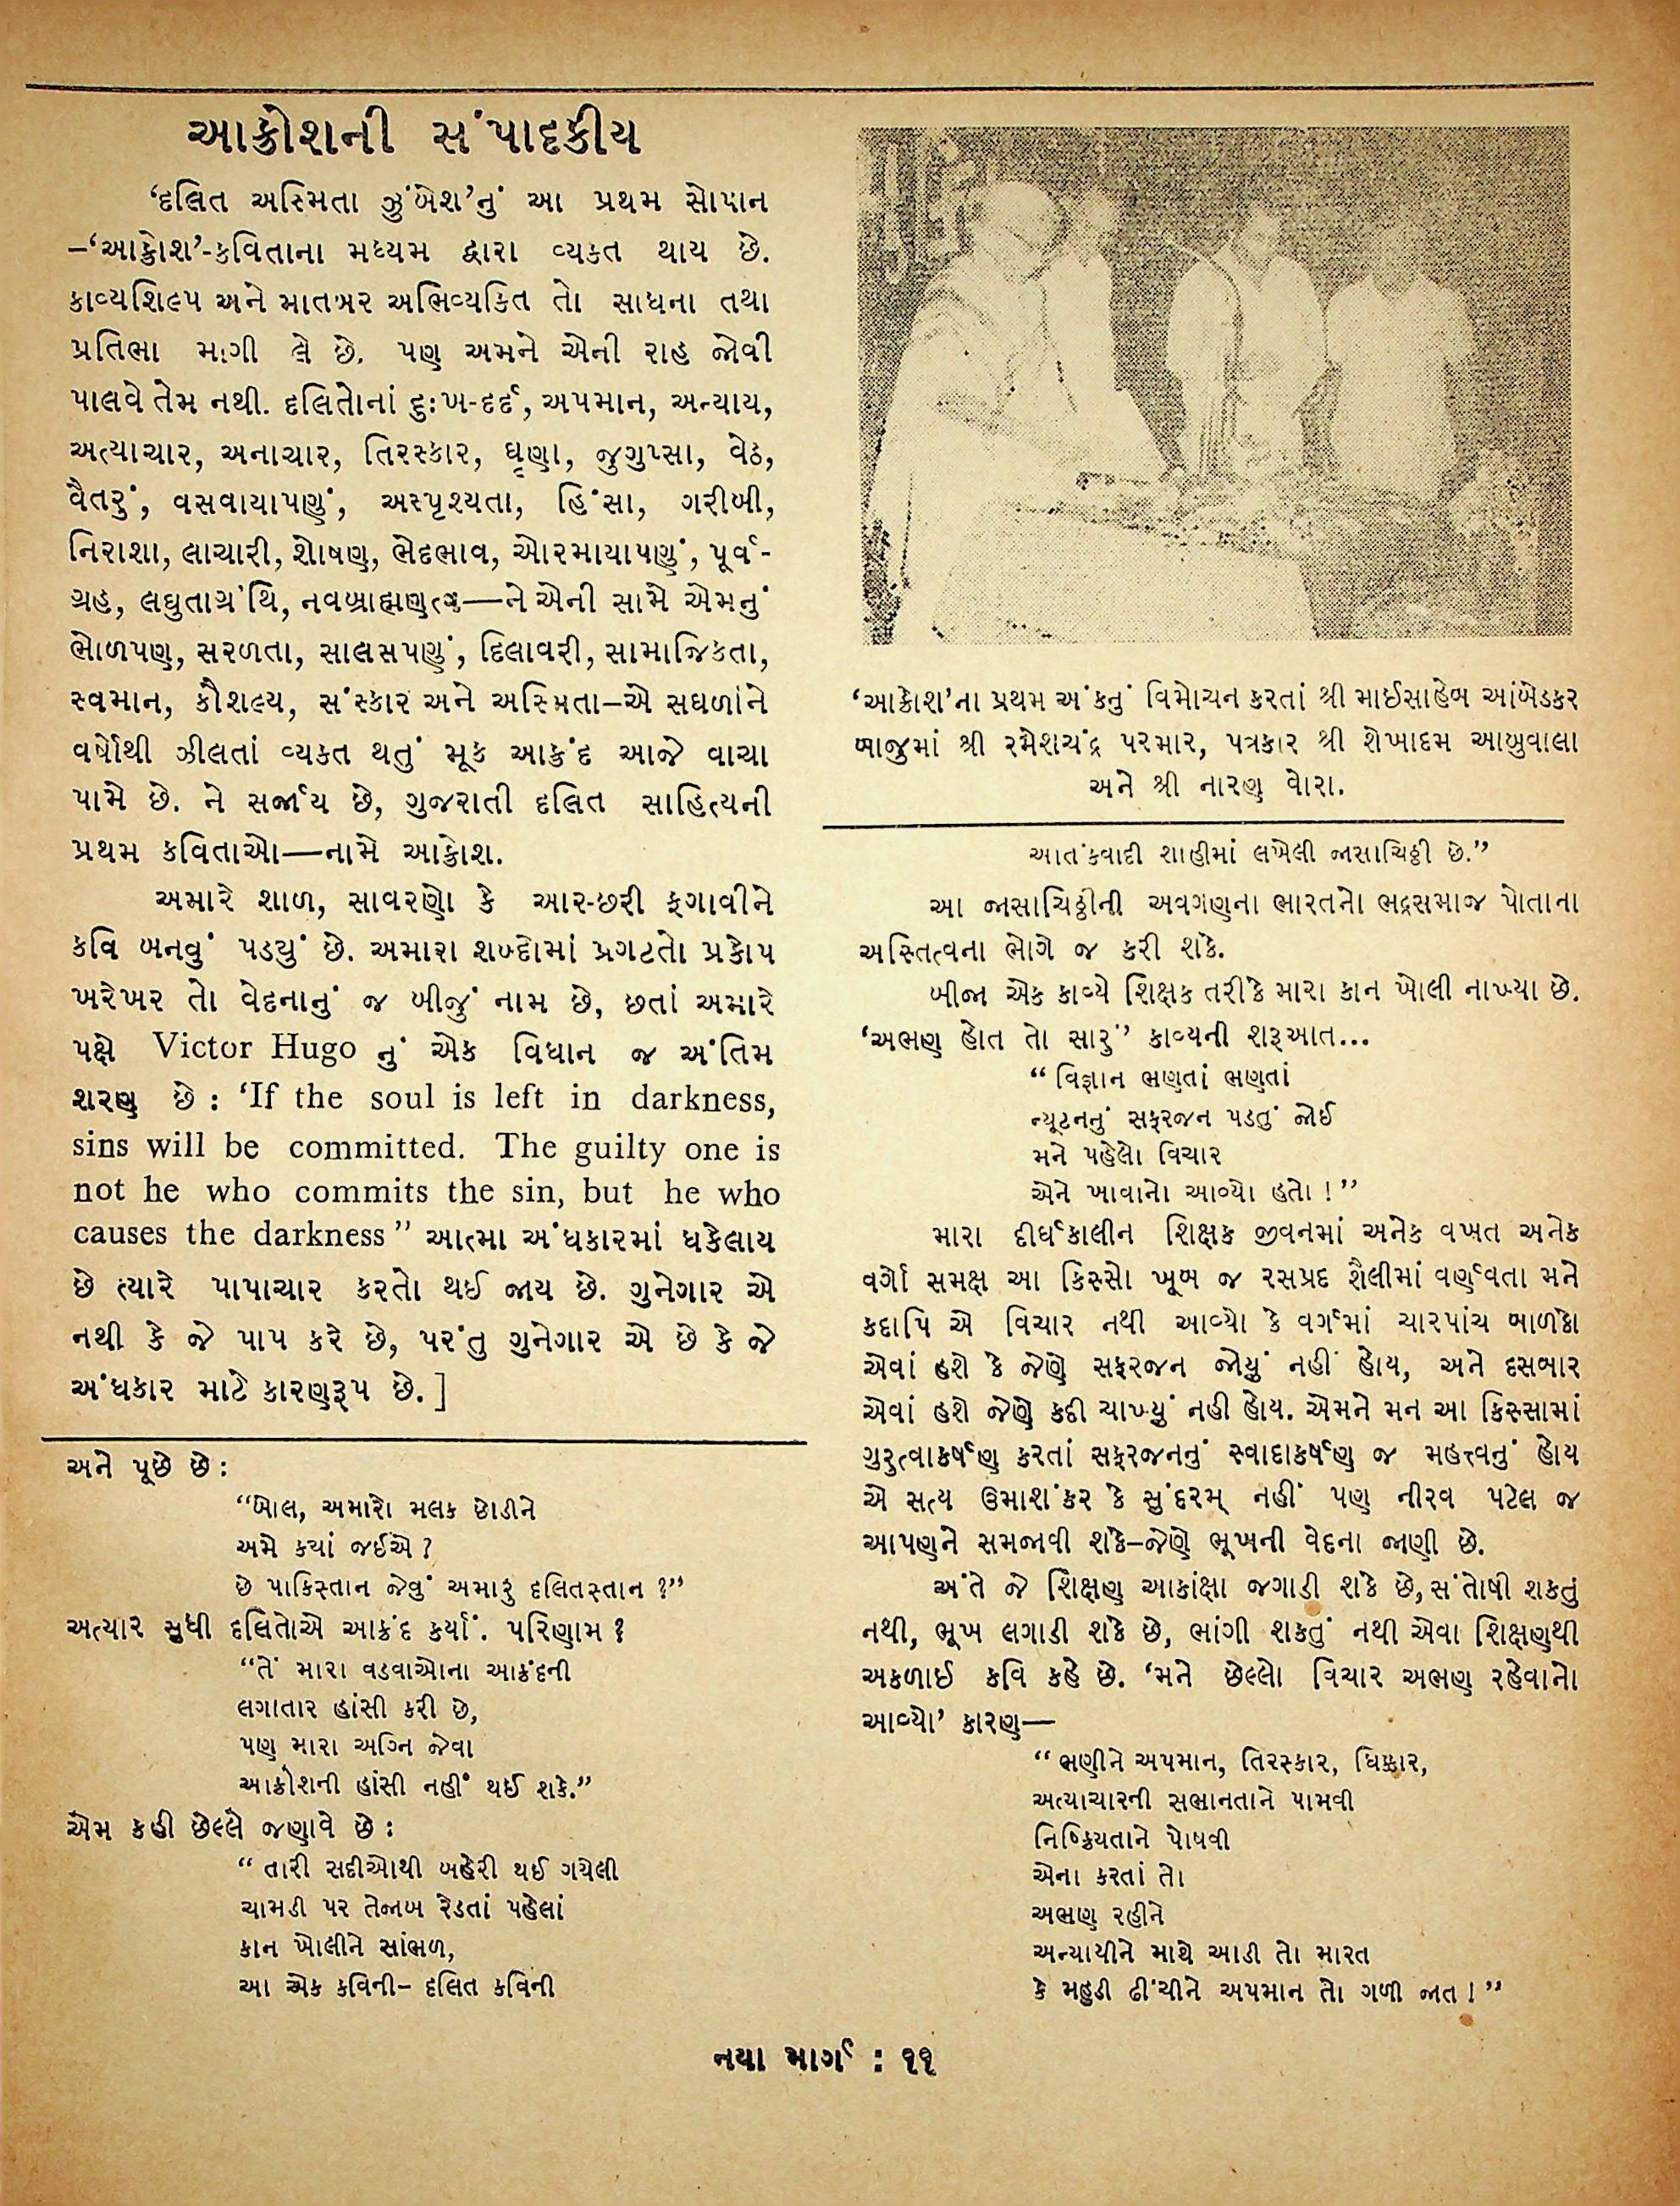 આક્રોશની સંપાદકીય
‘દલિત અસ્મિતા ઝુંબેશ’નું આ પ્રથમ સોપાન
–‘આક્રોશ’-કવિતાના મધ્યમ દ્વારા વ્યકત થાય છે.
કાવ્યશિલ્પ અને માતબર અભિવ્યકિત તો સાધના તથા
પ્રતિભા માગી લે છે. પણ અમને એની રાહ જોવી
પાલવે તેમ નથી. દલિતોનાં દુઃખ-દર્દ, અપમાન, અન્યાય,
અત્યાચાર, અનાચાર, તિરસ્કાર, ઘૃણા, જુગુપ્સા, વેઠ,
વૈતરું, વસવાયાપણું, અસ્પૃશ્યતા, હિંસા, ગરીબી,
નિરાશા, લાચારી, શોષણ, ભેદભાવ, ઓરમાયાપણું, પૂર્વ-
ગ્રહ, લઘુતાગ્રંથિ, નવબ્રાહ્મણત્વ—ને એની સામે એમનું
ભોળપણ, સરળતા, સાલસપણું, દિલાવરી, સામાજિકતા,
સ્વમાન, કૌશલ્ય, સંસ્કાર અને અસ્મિતા–એ સઘળાંને
વર્ષોથી ઝીલતાં વ્યકત થતું મૂક આક્રંદ આજે વાચા
પામે છે. ને સર્જાય છે, ગુજરાતી દલિત સાહિત્યની
પ્રથમ કવિતાઓ—નામે આક્રોશ.
અમારે શાળ, સાવરણો કે આર-છરી ફગાવીને
કવિ બનવું પડયું છે. અમારા શબ્દોમાં પ્રગટતો પ્રકોપ
ખરેખર તો વેદનાનું જ બીજું નામ છે, છતાં અમારે
પક્ષે Victor Hugo નું એક વિધાન જ અંતિમ
શરણ છે : ‘If the soul is left in darkness,
sins will be committed. The guilty one is
not he who commits the sin, but he who
causes the darkness” આત્મા અંધકારમાં ધકેલાય
છે ત્યારે પાપાચાર કરતો થઈ જાય છે. ગુનેગાર એ
નથી કે જે પાપ કરે છે, પરંતુ ગુનેગાર એ છે કે જે
અંધકાર માટે કારણરૂપ છે. ]
અને પૂછે છે :
“બોલ, અમારો મલક છોડીને
અમે કયાં જઈએ ?
છે પાકિસ્તાન જેવું અમારું દલિતસ્તાન ?”
અત્યાર સુધી દલિતોએ આક્રંદ કર્યાં. પરિણામ ?
“તેં મારા વડવાઓના આક્રંદની
લગાતાર હાંસી કરી છે,
પણ મારા અગ્નિ જેવા
આક્રોશની હાંસી નહીં થઈ શકે.”
એમ કહી છેલ્લે જણાવે છે :
“ તારી સદીઓથી બહેરી થઈ ગયેલી
ચામડી પર તેજાબ રેડતાં પહેલાં
કાન ખોલીને સાંભળ,
આ એક કવિની– દલિત કવિની
‘આક્રોશ’ના પ્રથમ અંકનું વિમોચન કરતાં શ્રી માઈસાહેબ આંબેડકર
બાજુમાં શ્રી રમેશચંદ્ર પરમાર, પત્રકાર શ્રી શેખાદમ આબુવાલા
અને શ્રી નારણ વોરા.
આતંકવાદી શાહીમાં લખેલી જાસાચિઠ્ઠી છે.”
આ જાસાચિઠ્ઠીની અવગણના ભારતનો ભદ્રસમાજ પોતાના
અસ્તિત્વના ભોગે જ કરી શકે.
બીજા એક કાવ્યે શિક્ષક તરીકે મારા કાન ખોલી નાખ્યા છે.
‘અભણ હોત તો સારું’ કાવ્યની શરૂઆત...
“ વિજ્ઞાન ભણતાં ભણતાં
ન્યૂટનનું સફરજન પડતું જોઈ
મને પહેલો વિચાર
એને ખાવાનો આવ્યો હતો ! ”
મારા દીર્ઘકાલીન શિક્ષક જીવનમાં અનેક વખત અનેક
વર્ગો સમક્ષ આ કિસ્સો ખૂબ જ રસપ્રદ શૈલીમાં વર્ણવતા મને
કદાપિ એ વિચાર નથી આવ્યો કે વર્ગમાં ચારપાંચ બાળકો
એવાં હશે કે જેણે સફરજન જોયું નહીં હોય, અને દસબાર
એવાં હશે જેણે કદી ચાખ્યું નહી હોય. એમને મન આ કિસ્સામાં
ગુરુત્વાકર્ષણ કરતાં સફરજનનું સ્વાદાકર્ષણ જ મહત્ત્વનું હોય
એ સત્ય ઉમાશંકર કે સુંદરમ્ નહીં પણ નીરવ પટેલ જ
આપણને સમજાવી શકે–જેણે ભૂખની વેદના જાણી છે.
અંતે જે શિક્ષણ આકાંક્ષા જગાડી શકે છે, સંતોષી શકતું
નથી, ભૂખ લગાડી શકે છે, ભાંગી શકતું નથી એવા શિક્ષણથી
અકળાઈ કવિ કહે છે. ‘મને છેલ્લો વિચાર અભણ રહેવાનો
આવ્યો’ કારણ—
“ ભણીને અપમાન, તિરસ્કાર, ધિક્કાર,
અત્યાચારની સભાનતાને પામવી
નિષ્ક્રિયતાને પોષવી
એના કરતાં તો
અભણ રહીને
અન્યાયીને માથે આડી તો મારત
કે મહુડી ઢીંચીને અપમાન તો ગળી જાત ! ”
નયા માર્ગ : ૧૧